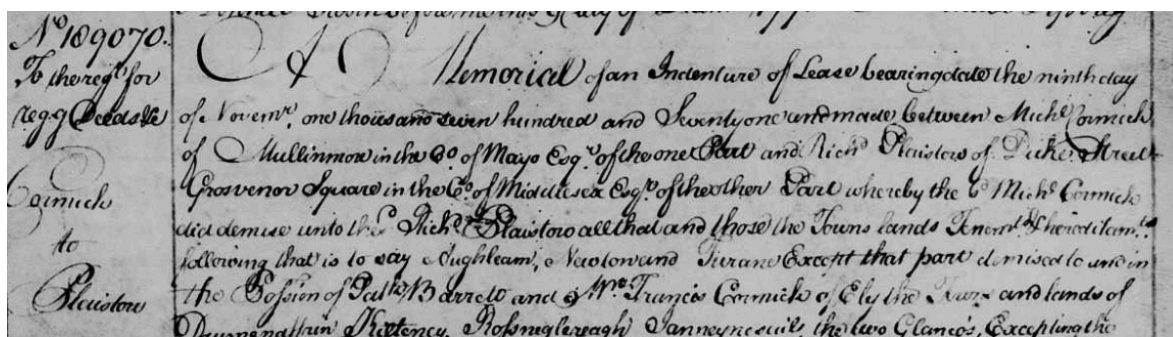 No 189070.
To the regr for
regg Deeds &c
Cormick
to
Plaistow
A Memorial of an Indenture of Lease bearing date the ninth day
of Novemr. one thousand seven hundred and Seventy one and made between Michl Cormick
of Mullinmore in the Co of Mayo Esqr. of the one Part and Richd Plaistow of Duke Street
Grosvenor Square in the Co. of Middlesex Esqr. of the other Part whereby the sd Michl Cormick
did demise unto the sd Richd Plaistow all that and those the Towns lands Tenemts & hereditamts
following that is to say Aughleam, and Turane Except that part demised to and in
the Possion of Barrett and Francis Cormick of Ely the and lands of
the two Glancos, Excepting the